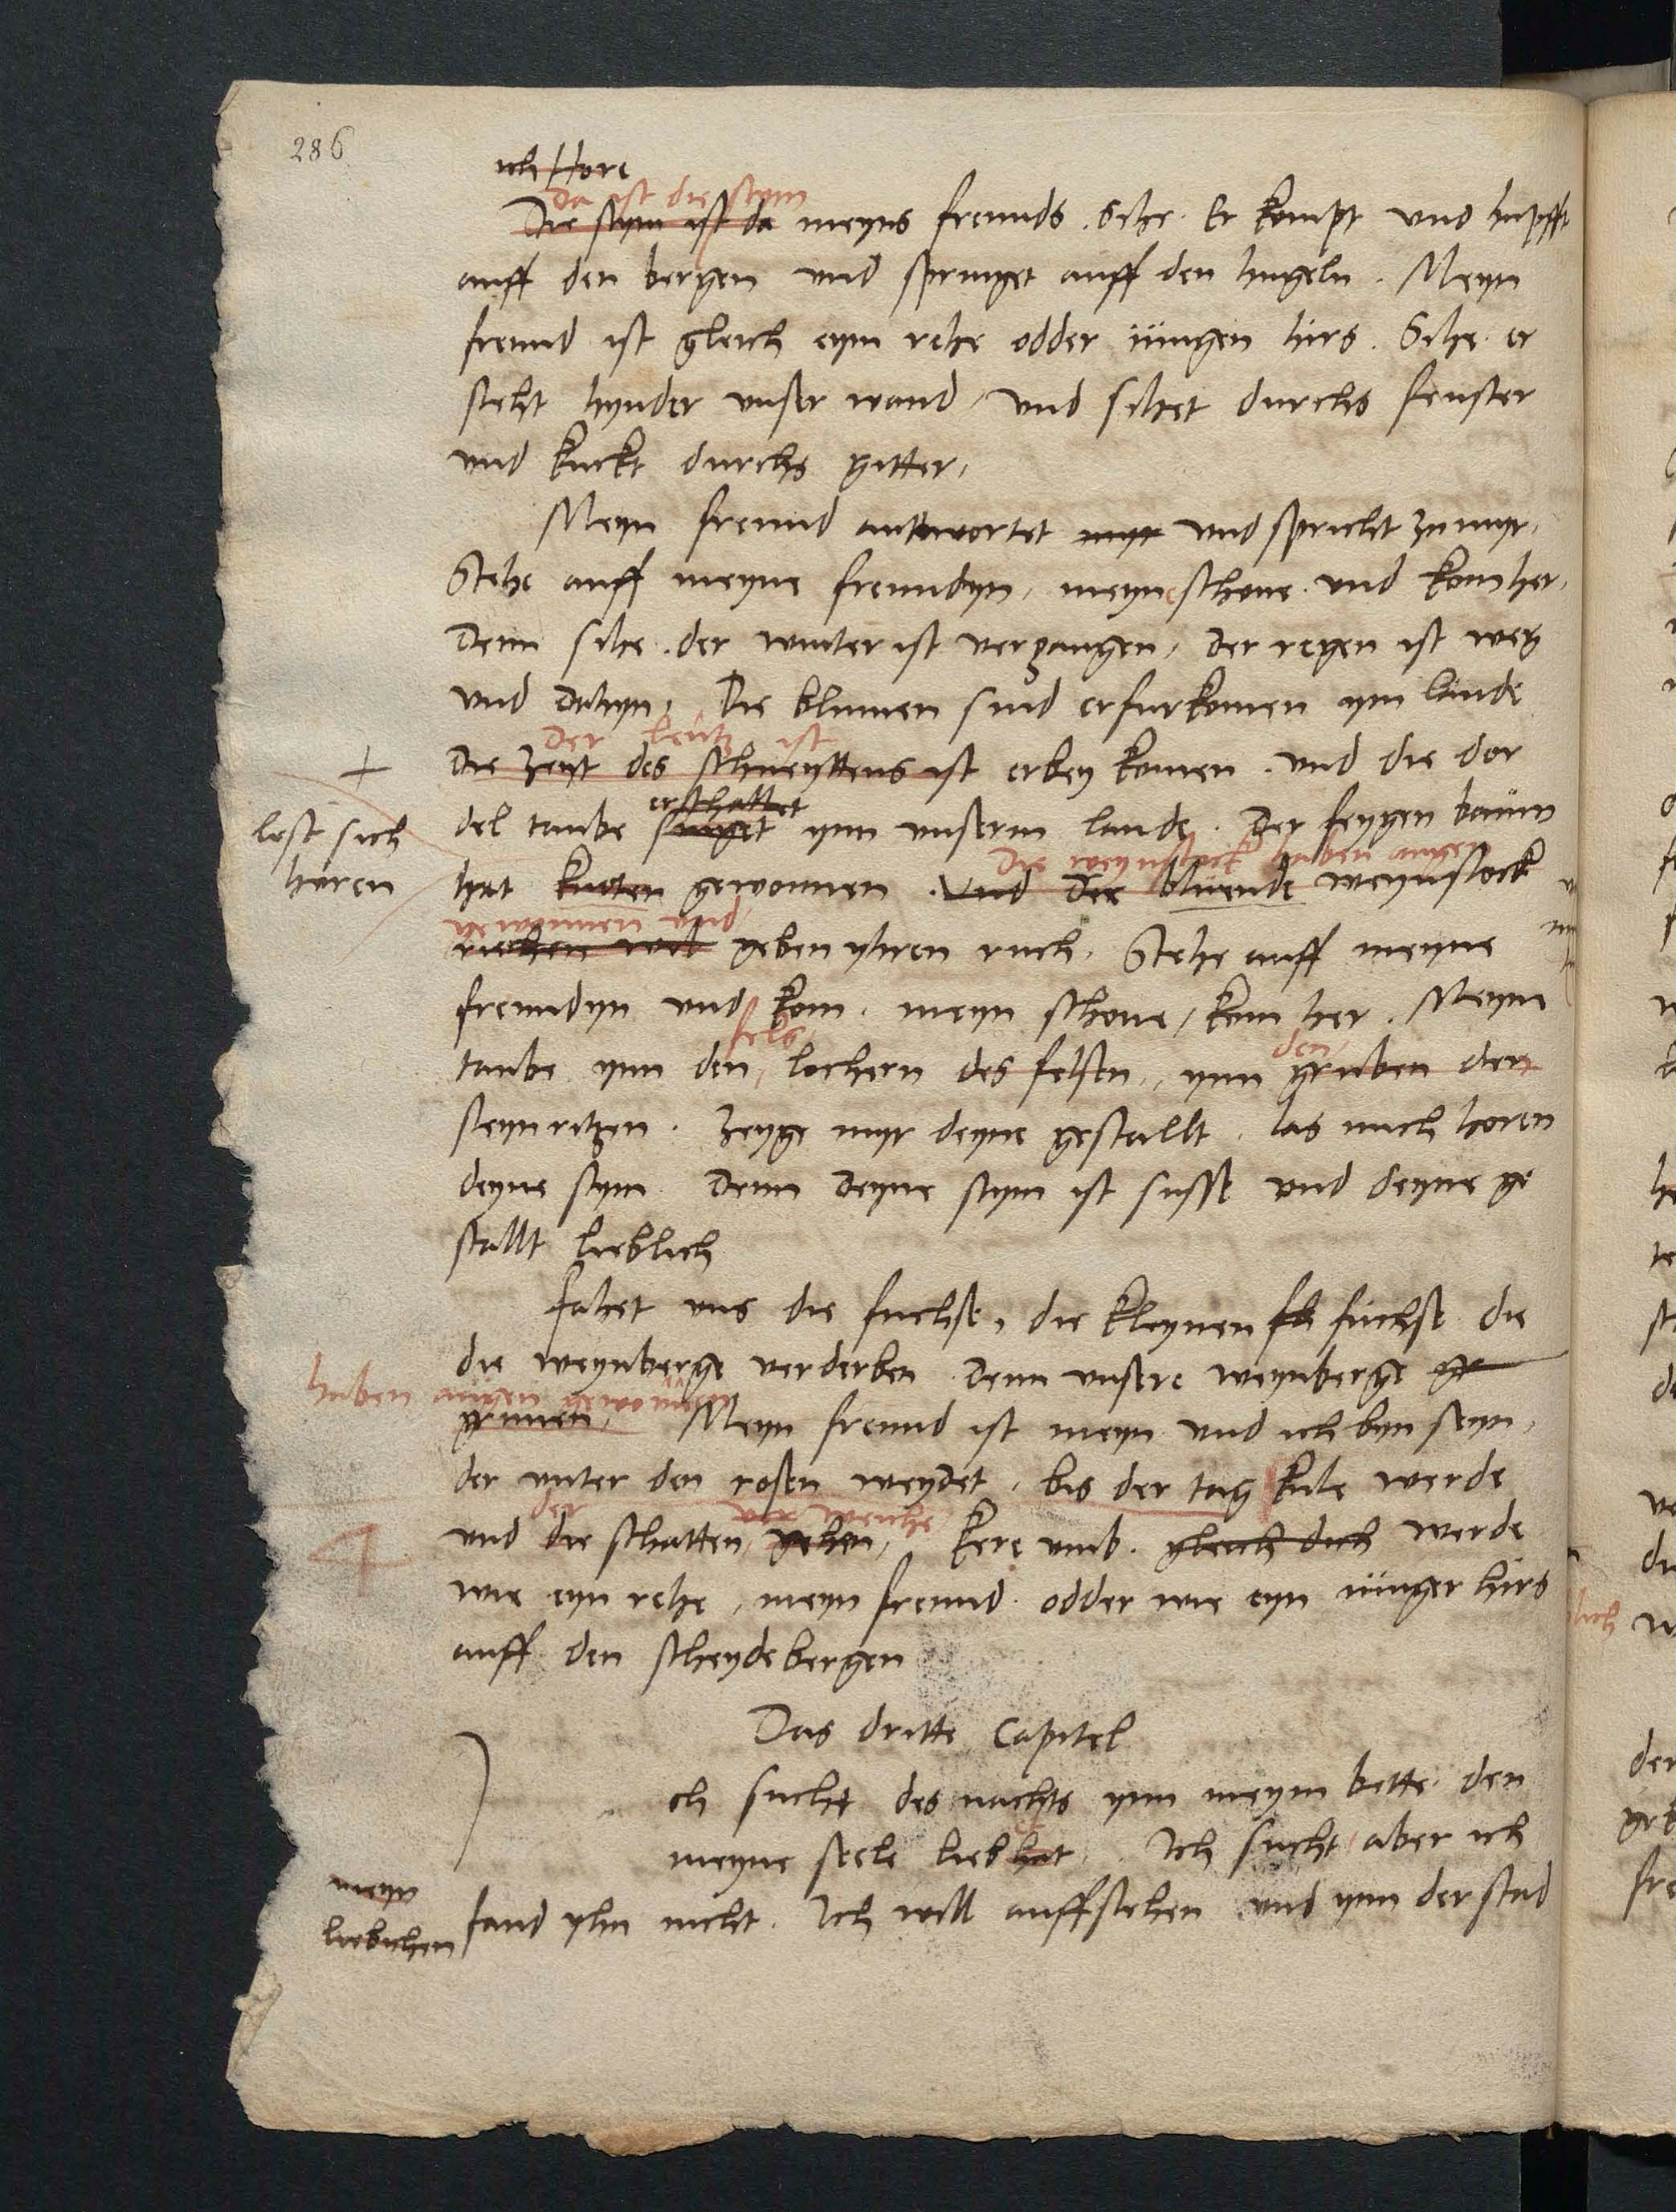 286
ich Hore
Da ist die stym
Die stym ist da meyns freunds. Sihe. Er kompt und hupfft
auff den bergen und springet auff den hugeln. Meyn
freund ist gleich eym rehe odder iungen hirs. Sihe. er
steht hynder unser wand, und sihet durchs fenster
und kuckt durchs gitter,
Meyn freund antwortet myr und spricht zu myr,
Stehe auff meyne freundyn, meyne schone und kom her,
Denn sihe. der winter ist vergangen, der regen ist weg
und dahyn, Die blumen sind erfurkomen ym lande
der lentz ist
+ die zeyt des schneyttens ist erbey komen. und die dor
erschallet
lest sich
horen
del taube singet ynn unserm lande. Der feygen baum
die weynstock haben augen
hat knoten gewonnen. Und der bluende weynstock
gewonnen und
riechen wol geben yhren ruch, Stehe auff meyne
freundyn und kom. meyn schone, kom her. Meyne
fels
den
taube ynn den lochern des felsen, ynn gruben der
steynritzen. Zeyge myr deyne gestallt, las mich horen
deyne stym Denn deyne stym ist susse und deyne ge
stallt lieblich
Fahet uns die fuchse, die kleynen fh fuchse die
die weynberge verderben Denn unsere weynberge gr
haben augen gewonnen
grunen, Meyn freund ist meyn und ich byn seyn,
der unter den rosen weydet, bis der tag kule werde
der
und die schatten gehen, Kere umb. gleich dich werde
wie eyn rehe, meyn freund odder wie eyn iunger hirs
auff den scheydebergen
Das dritte Capitel
ch sucht des nachts ynn meym bette den
meyne seele lieb hat, Ich sucht aber ich
meyn
liebichen
fand yhn nicht. Ich will auffstehen und ynn der stad